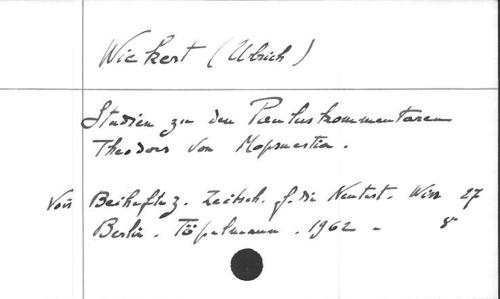 Wickert (Ulrich)
Studien zu den Pauluskommentaren
Theodors von Mopsuestia.
Voir Beihefte z. Zeitsch. f. die Neutest. Wiss 27
Berlin. Töpelmann. 1962 - 8°